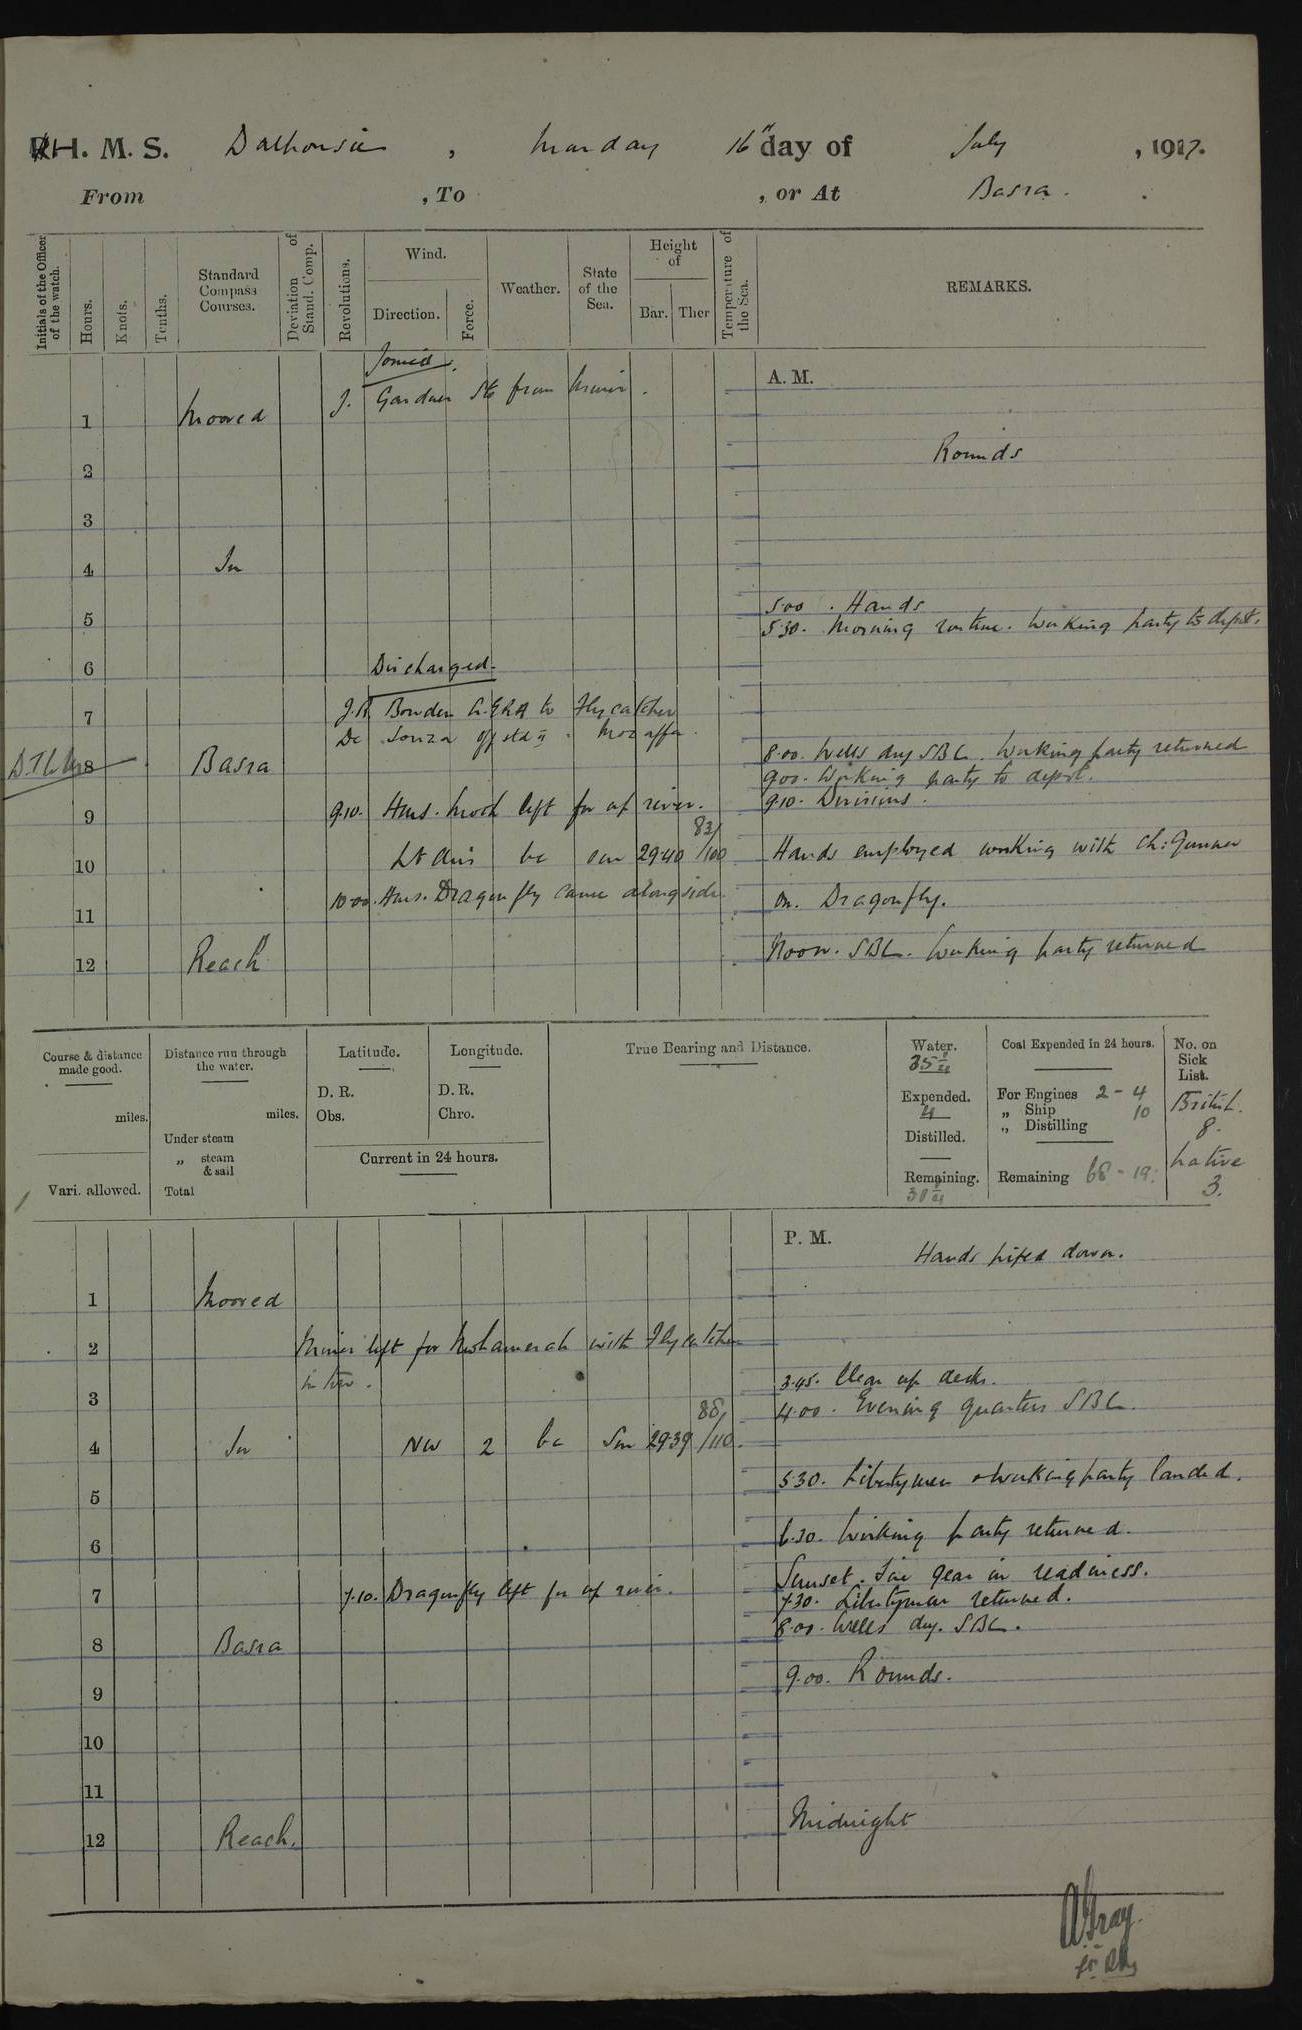 H. M. S. Dalhousie , Monday 16th day of July , 1917.
From , To , or At Basra .
Initials of the Officer of the watch.
Hours.
Knots.
Tenths.
Standard Compass Courses.
Deviation of Stand. Comp.
Revolutions.
Wind.
Direction.
Force.
Weather.
State of the Sea.
Height of
Bar.
Ther
Temperature of the Sea.
REMARKS.
Joined.
A. M.
J. Gardner Sto from Miner .
1 Moored
Rounds
2
3
4 In
5.00 . Hands
5 5.30. Morning routine. Working party to depot.
6 Discharged.
7 J.R. Bowden A.ERA to Flycatcher
De Souza
8 Basra 8.00. Wells dry SBC. Working party returned
9.00. Working party to depot.
9 9.10. Hms. Moth left for up river. 9.10. Divisions.
83/
10 Lt Airs bc sm 29.40 /100 Hands employed working with Ch: Gunner
10.00. Hms. Dragonfly came alongside. on. Dragonfly.
11
12 Reach Noon. SBC. Working party returned
Course & distance made good.
miles.
Vari. allowed.
Distance run through the water.
miles.
Under steam
„ steam & sail
Total
Latitude.
D. R.
Obs.
Longitude.
D. R.
Chro.
Current in 24 hours.
True Bearing and Distance.
Water.
Expended.
Distilled.
Remaining.
Coal Expended in 24 hours.
For Engines 2 - 4
„ Ship 10
„ Distilling
Remaining 68 - 19.
No. on Sick List.
British.
8.
Native
3.
P. M.
Hands piped down.
1 Moored
2 Miner left for Mohamerah with Flycatcher
in tow.
3.45. Clear up decks.
3 4.00. Evening quarters SBC.
88/
4 In NW 2 bc Sm 29.39 /110.
5 5.30. Libertymen & working party landed.
6 6.30. Working party returned.
Sunset. Fire gear in readiness.
7 7.10. Dragonfly left for up river. 7.30. Libertymen returned.
8.00. Wells dry. SBC.
8 Basra
9.00. Rounds.
9
10
11
12 Reach. Midnight
AGray.